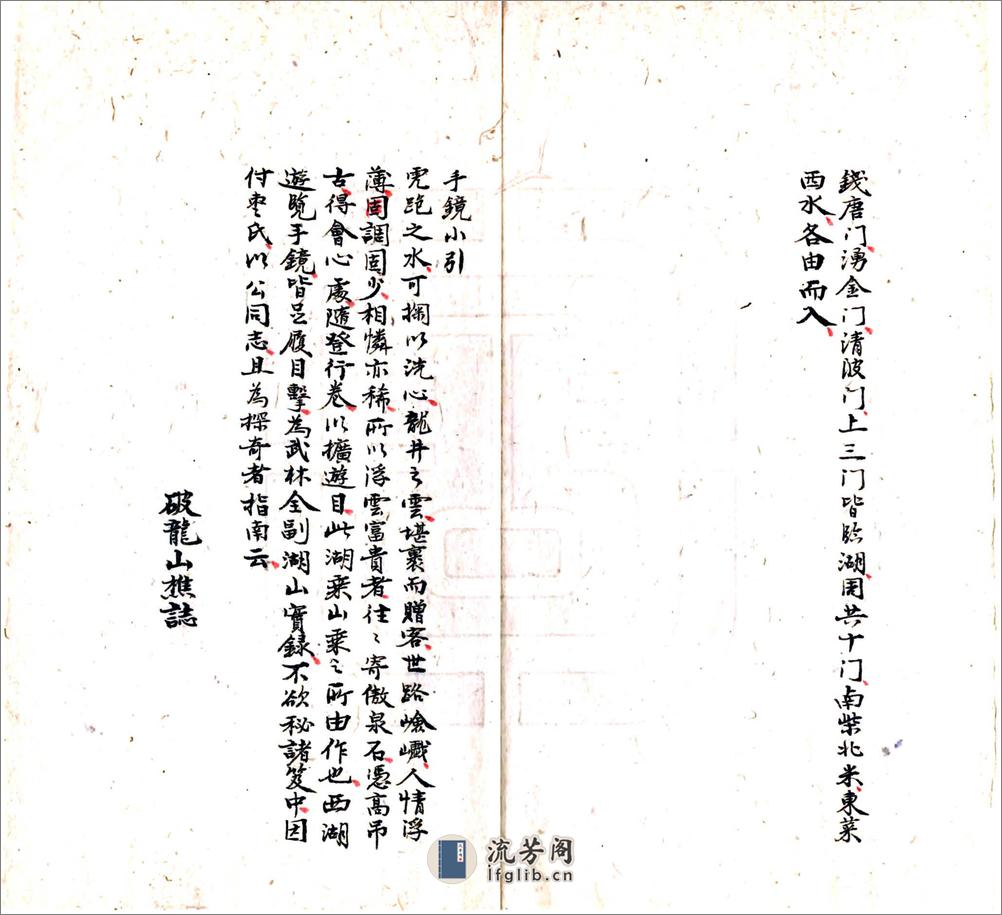 錢唐门湧金门清波门上三门皆臨湖周共十门南柴北米東菜
西水各由而入
手鏡小引
虎跑之水可掬以洗心龍井之雲堪裹而贈客世路嶮巇人情浮
薄固調固少相憐亦稀所以浮雲富貴者往〻寄傲泉石憑高吊
古得會心處隨登行卷以擴遊目此湖乗山乗之所由作也西湖
遊覧手鏡皆足履目擊為武林全副湖山實録不欲秘諸笈中因
付枣氏以公同志且為探奇者指南云
破龍山樵誌
流芳阁
lfglib.cn